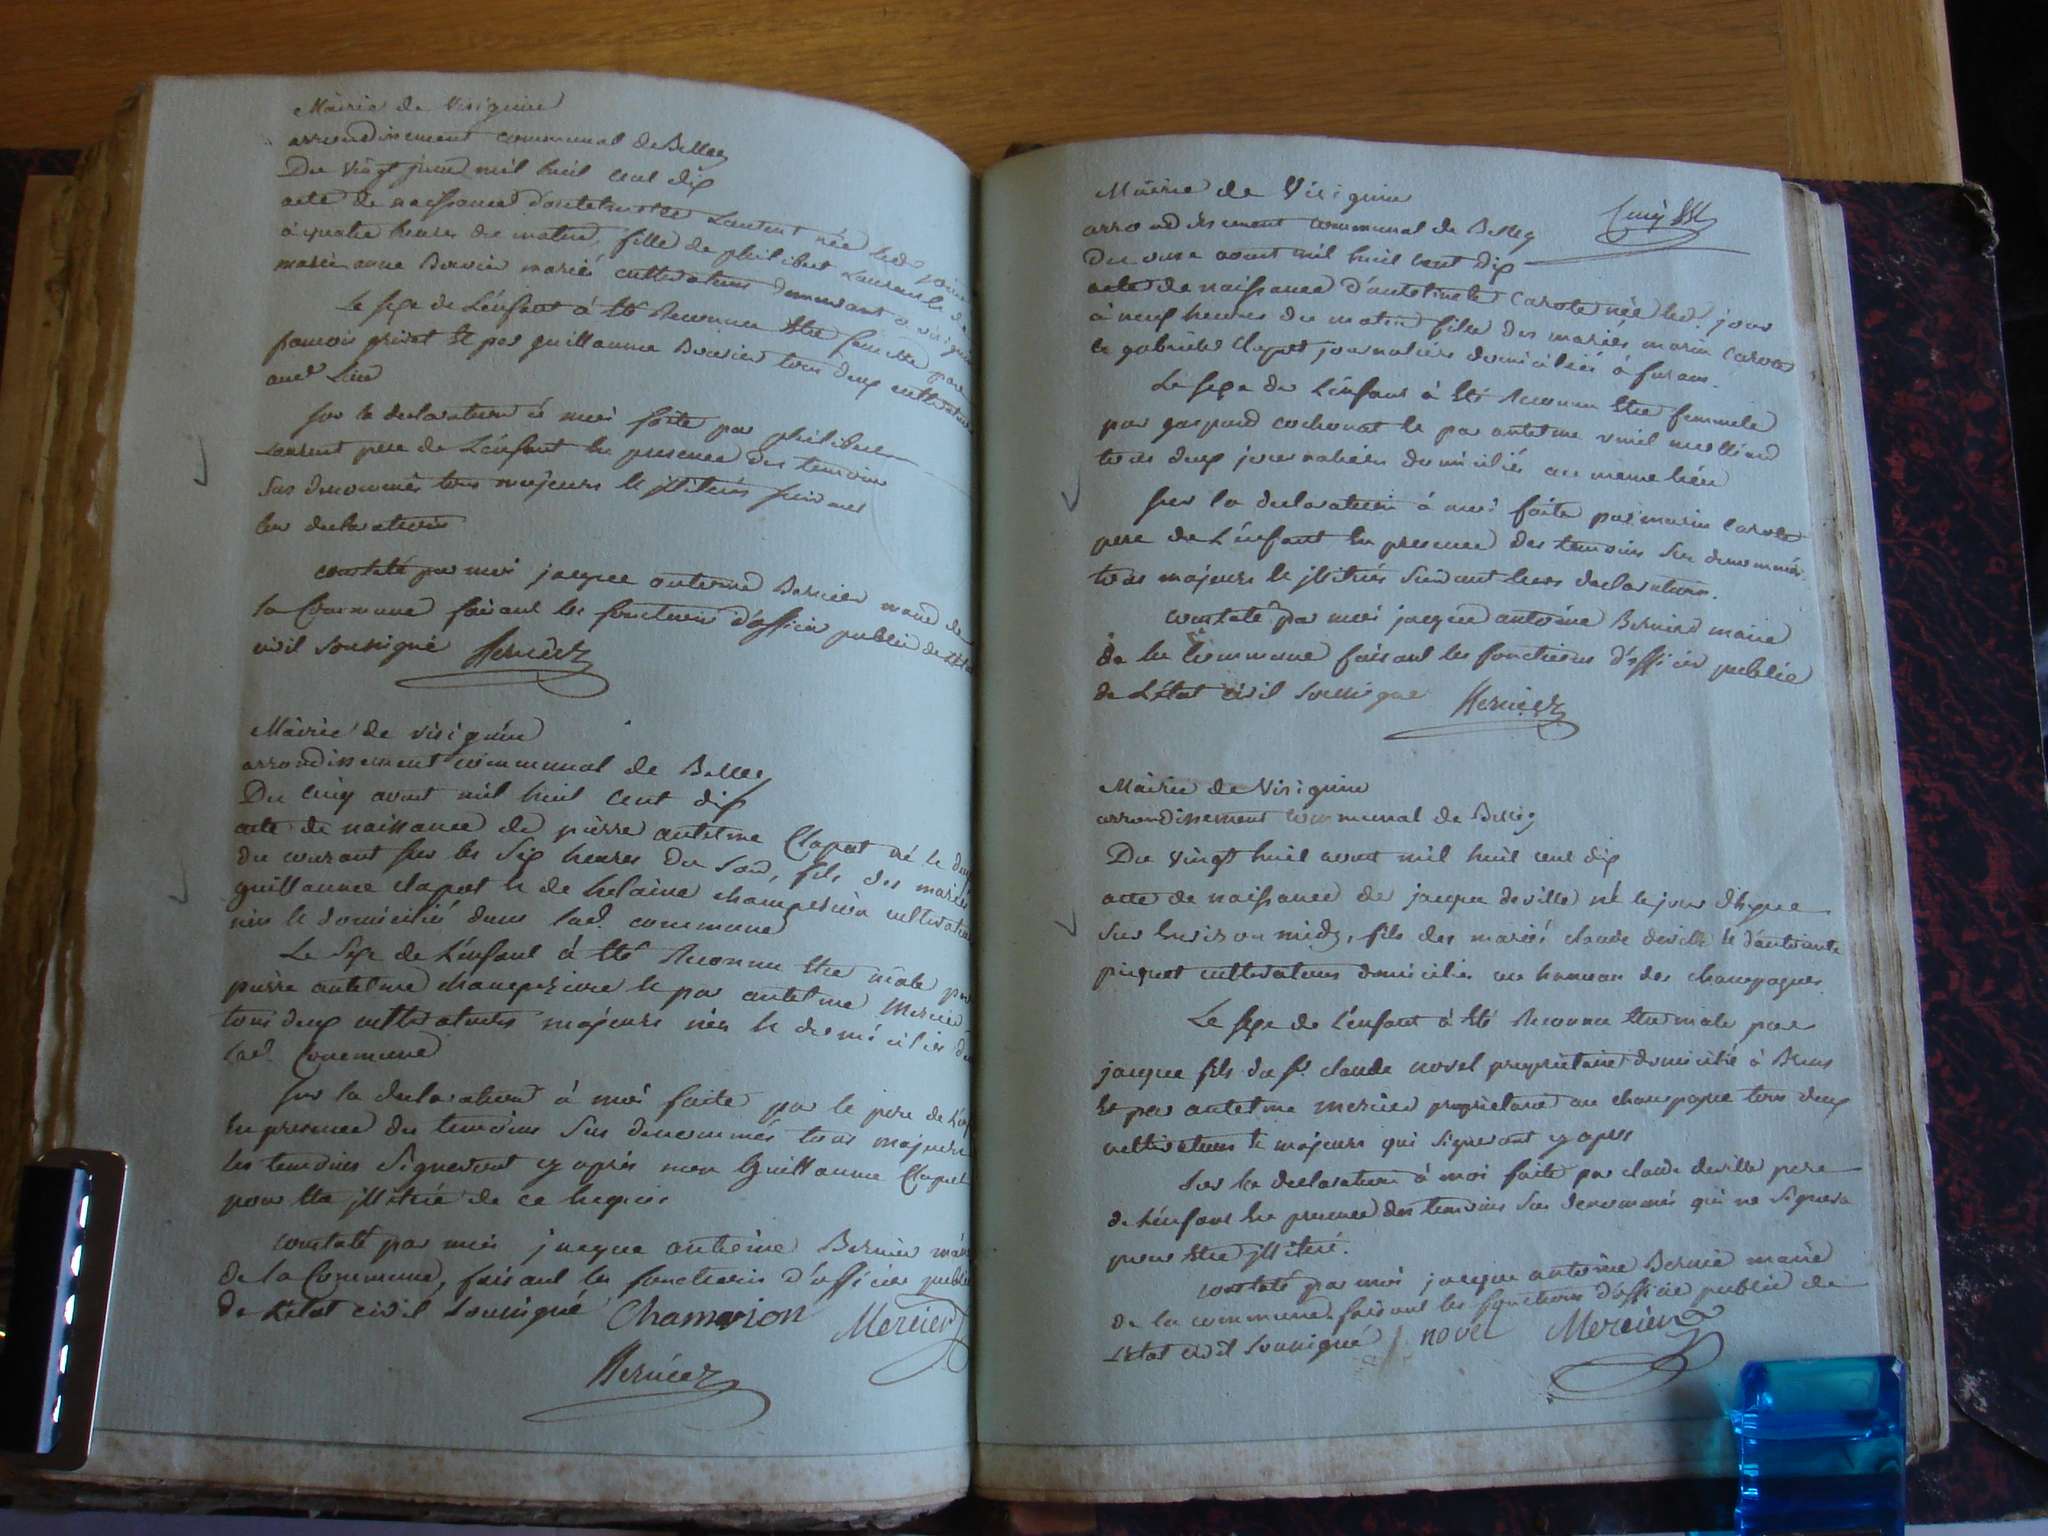 Mairie de Virignin
arrondissement communal de Belley
Du vingt juin mil huit cent dix
acte de naissance d'antelmette Laurent née led. jour
à quatre heures du matin, fille de philibert Laurent & de
marie anne Bovier mariés cultivateurs demeurant a virignin
Le sexe de L'enfant à été reconnu être femelle par
françois privat et par guillaume Bovier tous deux cultivateurs
aud. Lieu
sur la declaration à moi faite par philibert
Laurent pere de L'enfant en presence des temoins
sus denommés tous majeurs & illitérés suivant
leur declaration
constaté par moi jacque antoine Bernier maire de
la Commune faisant les fonctions d'officier public de L'état
civil soussigné Bernier
Mairie de virignin
arrondissement communal de Belley
Du cinq aout mil huit cent dix
acte de naissance de pierre antelme Clapot né le deux
du courant sur les six heures du soir, fils des mariés
guillaume clapot & de helaine champion cultivateurs
nés & domiciliés dans lad. commune
Le sexe de L'enfant à été reconnu être male par
pierre antelme & par antelme Mercier
tous deux cultivateurs majeurs nés & domiciliés dans
lad. Commune
sur la declaration à moi faite par le pere de L'enf
en presence des temoins sus denommés tous majeurs
les temoins signeront cy après non Guillaume Clapot
pour être illitéré de ce requis
constaté par moi jacque antoine Bernier maire
de la Commune, faisant les fonctions d'officier public
de L'état civil soussigné Champion Mercier
Bernier
Mairie de Virignin
arrondissement communal de Belley
Du onze aout mil huit cent dix
acte de naissance d'antelmete Carote née led. jour
à neuf heures du matin fille des mariés marin Carote
& gabriele Clapot journaliers domiciliés à
Le sexe de L'enfant à été reconnu être femmele
par gaspard cochonat & par antelme
tous deux journaliers domiciliés au meme lieu
sur la declaration à moi faite par marin Carote
pere de L'enfant en presence des temoins sus denommés
tous majeurs & illitérés suivant leurs declaration.
constaté par moi jacque antoine Bernier maire
de la Commune faisant les fonctions d'officier public
de L'état civil soussigné Bernier
Mairie de Virignin
arrondissement communal de Belley
Du vingt huit aout mil huit cent dix
acte de naissance de jacque deville né le jour
sur environ midy, fils des mariés claude deville & d'antoinete
piquet cultivateurs domiciliés au hameau des champagnes
Le sexe de L'enfant à été reconnu être male par
jacque fils de f. claude novel proprietaire domicilié à Bens
et par antelme mercier proprietaire au champagne tous deux
cultivateurs & majeurs qui signeront cy après
sur la declaration à moi faite par claude deville pere
de L'enfant en presence des temoins sus denommés qui ne signera
pour être illitéré.
constaté par moi jacque antoine Bernier maire
de la commune, faisant les fonctions d'officier public de
L'état civil soussigné J. novel Mercier